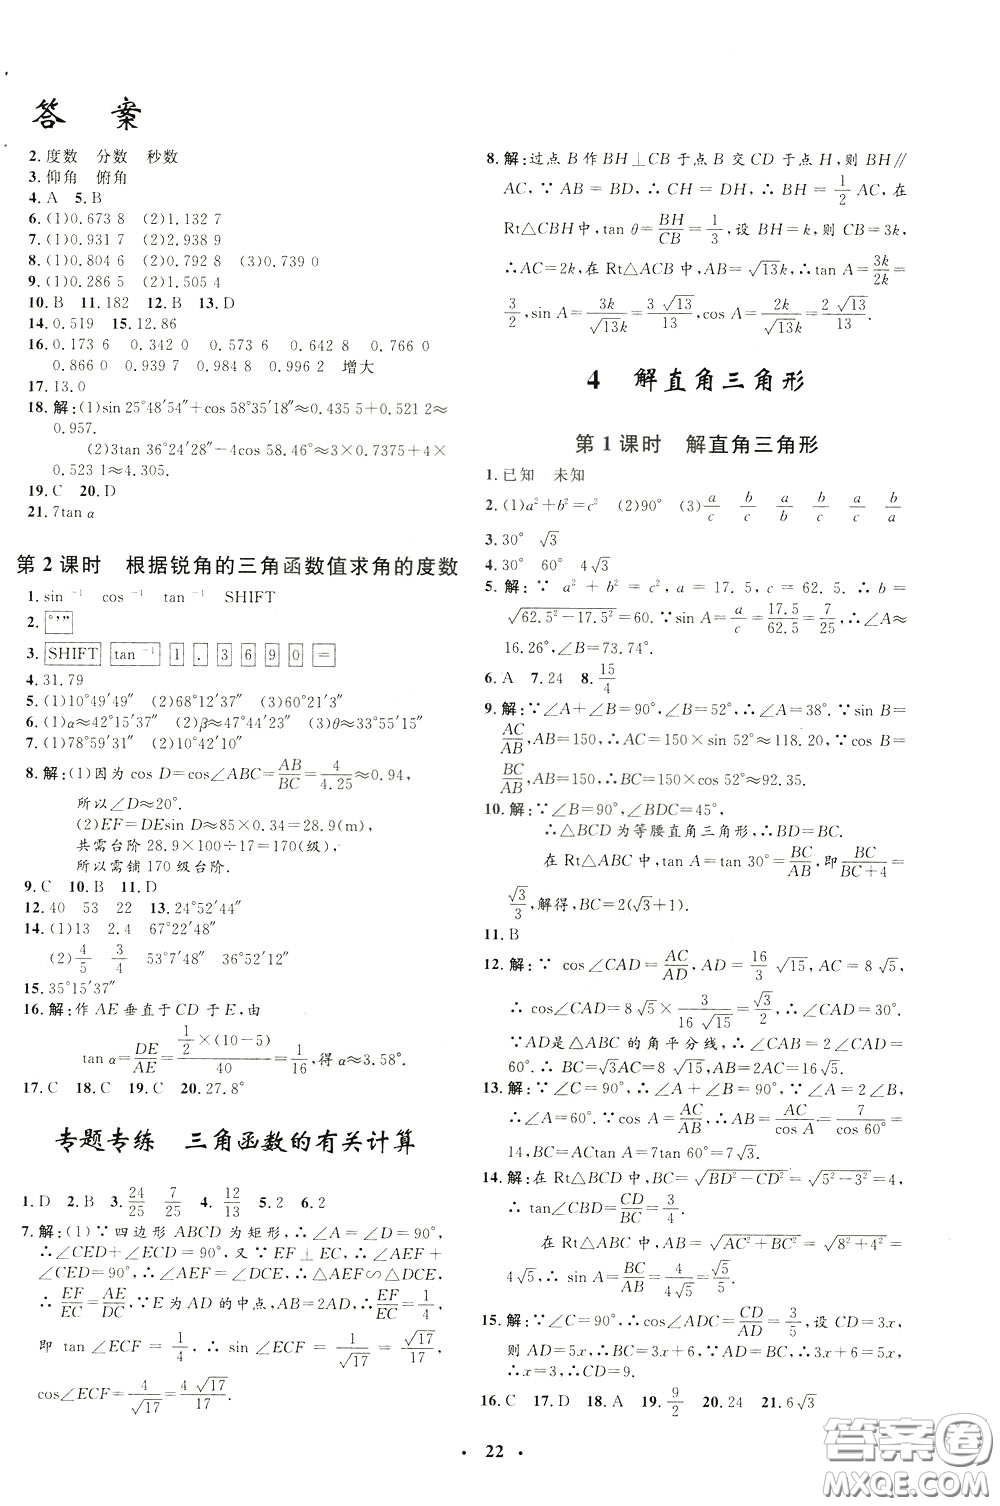 答 案
2.度数 分数 秒数
3.仰角 俯角
4.A 5.B
6.(1)0.673 8 (2)1.132 7
7.(1)0.931 7 (2)2.938 9
8.(1)0.804 6 (2)0.792 8 (3)0.739 0
9.(1)0.286 5 (2)1.505 4
10.B 11.182 12.B 13.D
14.0.519 15.12.86
16.0.173 6 0.342 0 0.573 6 0.642 8 0.766 0
0.866 0 0.939 7 0.984 8 0.996 2 增大
17.13.0
18.解:(1)sin 25°48′54″+cos 58°35′18″≈0.435 5+0.521 2≈
0.957.
(2)3tan 36°24′28″-4cos 58.46°≈3×0.7374+4×
0.523 1≈4.305.
19.C 20.D
21.7tan α
第 2 课时 根据锐角的三角函数值求角的度数
1.sin⁻¹ cos⁻¹ tan⁻¹ SHIFT
2.°′″
3.SHIFT tan⁻¹ 1 . 3 6 9 0 =
4.31.79
5.(1)10°49′49″ (2)68°12′37″ (3)60°21′3″
6.(1)α≈42°15′37″ (2)β≈47°44′23″ (3)θ≈33°55′15″
7.(1)78°59′31″ (2)17°42′9″
8.解:(1)因为 cos D=cos∠ABC=AB/BC=4/4.25≈0.94,
所以∠D≈20°.
(2)EF=DEsin D≈85×0.34=28.9(m),
共需台阶 28.9×100÷17=170(级),
所以需铺 170 级台阶.
9.C 10.B 11.D
12.40 53 22 13.24°52′44″
14.(1)13 2.4 67°22′48″
(2)4/5 3/4 53°7′48″ 36°52′12″
15.35°15′37″
16.解:作 AE 垂直于 CD 于 E,由
tan α=DE/AE=1/2×(10-5)/40=1/16,得 α≈3.58°.
17.C 18.C 19.C 20.27.8°
专题专练 三角函数的有关计算
1.D 2.B 3.24/25 7/25 4.12/13 5.2 6.2
7.解:(1)∵四边形 ABCD 为矩形,∴∠A=∠D=90°,
∴∠CED+∠ECD=90°,又∵EF⊥EC,∴∠AEF+
∠CED=90°,∴∠AEF=∠DCE,∴△AEF∽△DCE,
∴EF/EC=AE/DC,∵E 为 AD 的中点,AB=2AD,∴EF/EC=1/4,
即 tan∠ECF=1/4,∴sin∠ECF=1/√17=√17/17,
cos∠ECF=4/√17=4√17/17.
8.解:过点 B 作 BH⊥CB 于点 B 交 CD 于点 H,则 BH∥
AC,∵AB=BD,∴CH=DH,∴BH=1/2 AC,在
Rt△CBH 中,tan θ=BH/CB=1/3,设 BH=k,则 CB=3k,
∴AC=2k,在 Rt△ACB 中,AB=√13k,∴tan A=3k/2k=
3/2,sin A=3k/√13k=3√13/13,cos A=2k/√13k=2√13/13.
4 解直角三角形
第 1 课时 解直角三角形
1.已知 未知
2.(1)a²+b²=c² (2)90° (3)a/c b/c b/c a/c a/b b/a
3.30° √3
4.30° 60°
5.解:∵a²+b²=c²,a=17.5,c=62.5.∴b=
√62.5²-17.5²=60.∵sin A=a/c=17.5/62.5=7/25,∴∠A≈
16.26°,∠B=73.74°.
6.A 7.24 8.15/4
9.解:∵∠A+∠B=90°,∠B=52°,∴∠A=38°.∵sin B=
AC/AB,AB=150,∴AC=150×sin 52°≈118.20,∵cos B=
BC/AB,AB=150,∴BC=150×cos 52°≈92.35.
10.解:∵∠B=90°,∠BDC=45°,
∴△BCD 为等腰直角三角形,∴BD=BC.
在 Rt△ABC 中,tan A=tan 30°=BC/AB,即BC/BC+4=
√3/3,解得,BC=2(√3+1).
11.B
12.解:∵cos∠CAD=AC/AD,AD=16/3√15,AC=8√5,
∴cos∠CAD=8√5×3/16√15=√3/2,∴∠CAD=30°.
∵AD是△ABC 的角平分线,∴∠CAB=2∠CAD=
60°.∴BC=√3AC=8√15,AB=2AC=16√5.
13.解:∵∠C=90°,∴∠A+∠B=90°,∵∠A=2∠B,
∴∠A=60°.∵cos A=AC/AB,∴AB=AC/cos A=7/cos 60°=
14,BC=ACtan A=7tan 60°=7√3.
14.解:在 Rt△BCD 中,BC=√BD²-CD²=√5²-3²=4,
∴tan∠CBD=CD/BC=3/4.
在 Rt△ABC 中,AB=√AC²+BC²=√8²+4²=
4√5,∴sin A=BC/AB=4/4√5=√5/5.
15.解:∵∠C=90°,∴cos∠ADC=CD/AD=3/5,设 CD=3x,
则 AD=5x,∴BC=3x+6.∵AD=BC,∴3x+6=5x,
∴x=3,∴CD=9.
16.C 17.D 18.A 19.9/2 20.24 21.6√3
22
答案卷
MXQE.COM